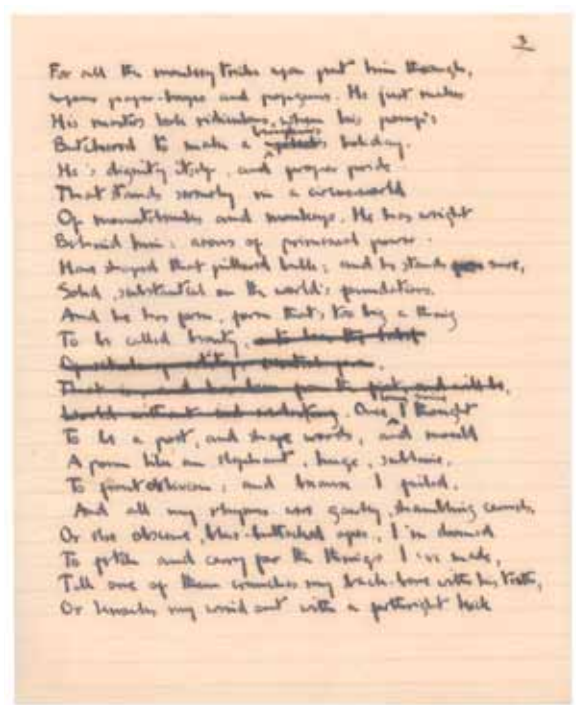 3
For all the monkey tricks you put him through,
Your paper-hoops and popguns. He just makes
His masters look ridiculous, when his pomp's
Butchered to make a bumpkin's holiday.
He's dignity itself, and proper pride
That stands serenely in a circus-world
Of mountebanks and monkeys. He has weight
Behind him: aeons of primeval power
Have shaped that pillared bulk; and he stands sure,
Solid, substantial on the world's foundations.
And he has form, form that's too big a thing
To be called beauty.
Once, I thought
To be a poet, and shape words, and mould
A poem like an elephant, huge, sublime,
To front oblivion; and because I failed,
And all my rhymes were gawky, shambling camels,
Or else obscene, blue-buttocked apes, I'm doomed
To fetch and carry for the things I've made,
Till one of them crunches my back-bone with his teeth,
Or knocks my wind out with a forthright kick